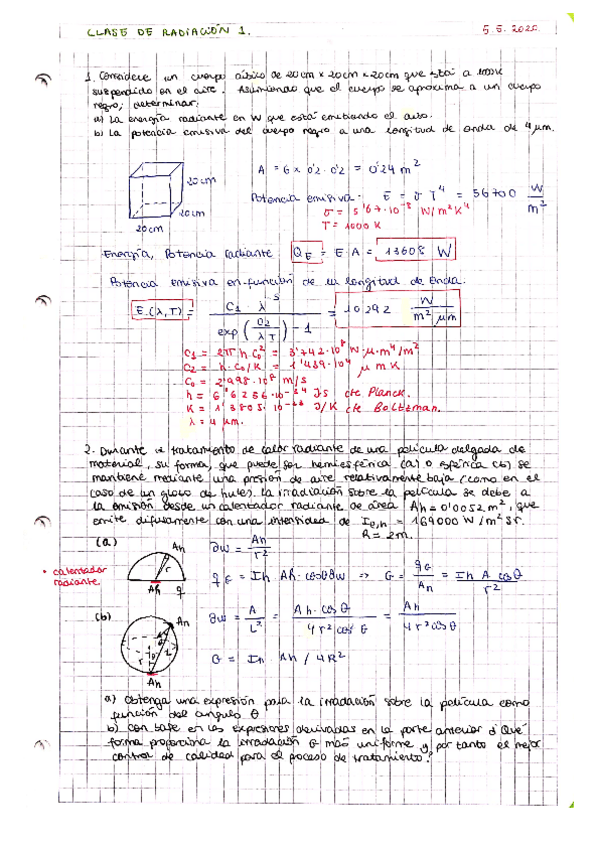 CLASE DE RADIACIÓN 1. 5.5.2025
1. Considere un cuerpo cúbico de 20cm x 20cm x 20cm que está a 1000K
suspendido en el aire. Asumiendo que el cuerpo se aproxima a un cuerpo
negro, determinar:
a) La energía radiante en W que está emitiendo el cubo.
b) La potencia emisiva del cuerpo negro a una longitud de onda de 4 μm.
20cm
20cm
20cm
A = 6 x 0'2 · 0'2 = 0'24 m²
Potencia emisiva: E = σ T⁴ = 56700 W/m²
σ = 5'67·10⁻⁸ W/m²K⁴
T = 1000 K
Energía, Potencia radiante Q_E = E·A = 13608 W
Potencia emisiva en función de la longitud de onda:
E(λ,T) = C₁ · λ⁻⁵ / (exp(C₂/λT) - 1) = 10292 W/m² μm
C₁ = 2πh C₀² = 3'742·10⁸ W·μ·m⁴/m²
C₂ = h·C₀/K = 1'439·10⁴ μ m K
C₀ = 2'998·10⁸ m/s
h = 6'6256·10⁻³⁴ Js cte Planck.
K = 1'3805·10⁻²³ J/K cte Boltzman.
λ = 4 μm.
2. Durante el tratamiento de calor radiante de una película delgada de
material, su forma, que puede ser hemiesférica (a) o esférica (b) se
mantiene mediante una presión de aire relativamente baja (como en el
caso de un globo de hule). La irradiación sobre la película se debe a
la emisión desde un calentador radiante de área Ah = 0'0052 m², que
emite difusamente con una intensidad de I_e,h = 169000 W/m² sr.
R = 2m.
(a)
An
r
Ah
q
• calentador
radiante
∂w = An/r²
q_G = Ih · Ah · cosθ ∂w ⇒ G = q_G/An = Ih A cosθ / r²
(b)
An
r
Ah
∂w = A/L² = An · cos θ / 4r² cos² θ = An / 4r² cos θ
G = Ih · Ah / 4R²
a) Obtenga una expresión para la irradiación sobre la película como
función del angulo θ
b) Con base en las expresiones derivadas en la parte anterior ¿Qué
forma proporciona la irradiación G más uniforme y, por tanto el mejor
control de calidad para el proceso de tratamiento?